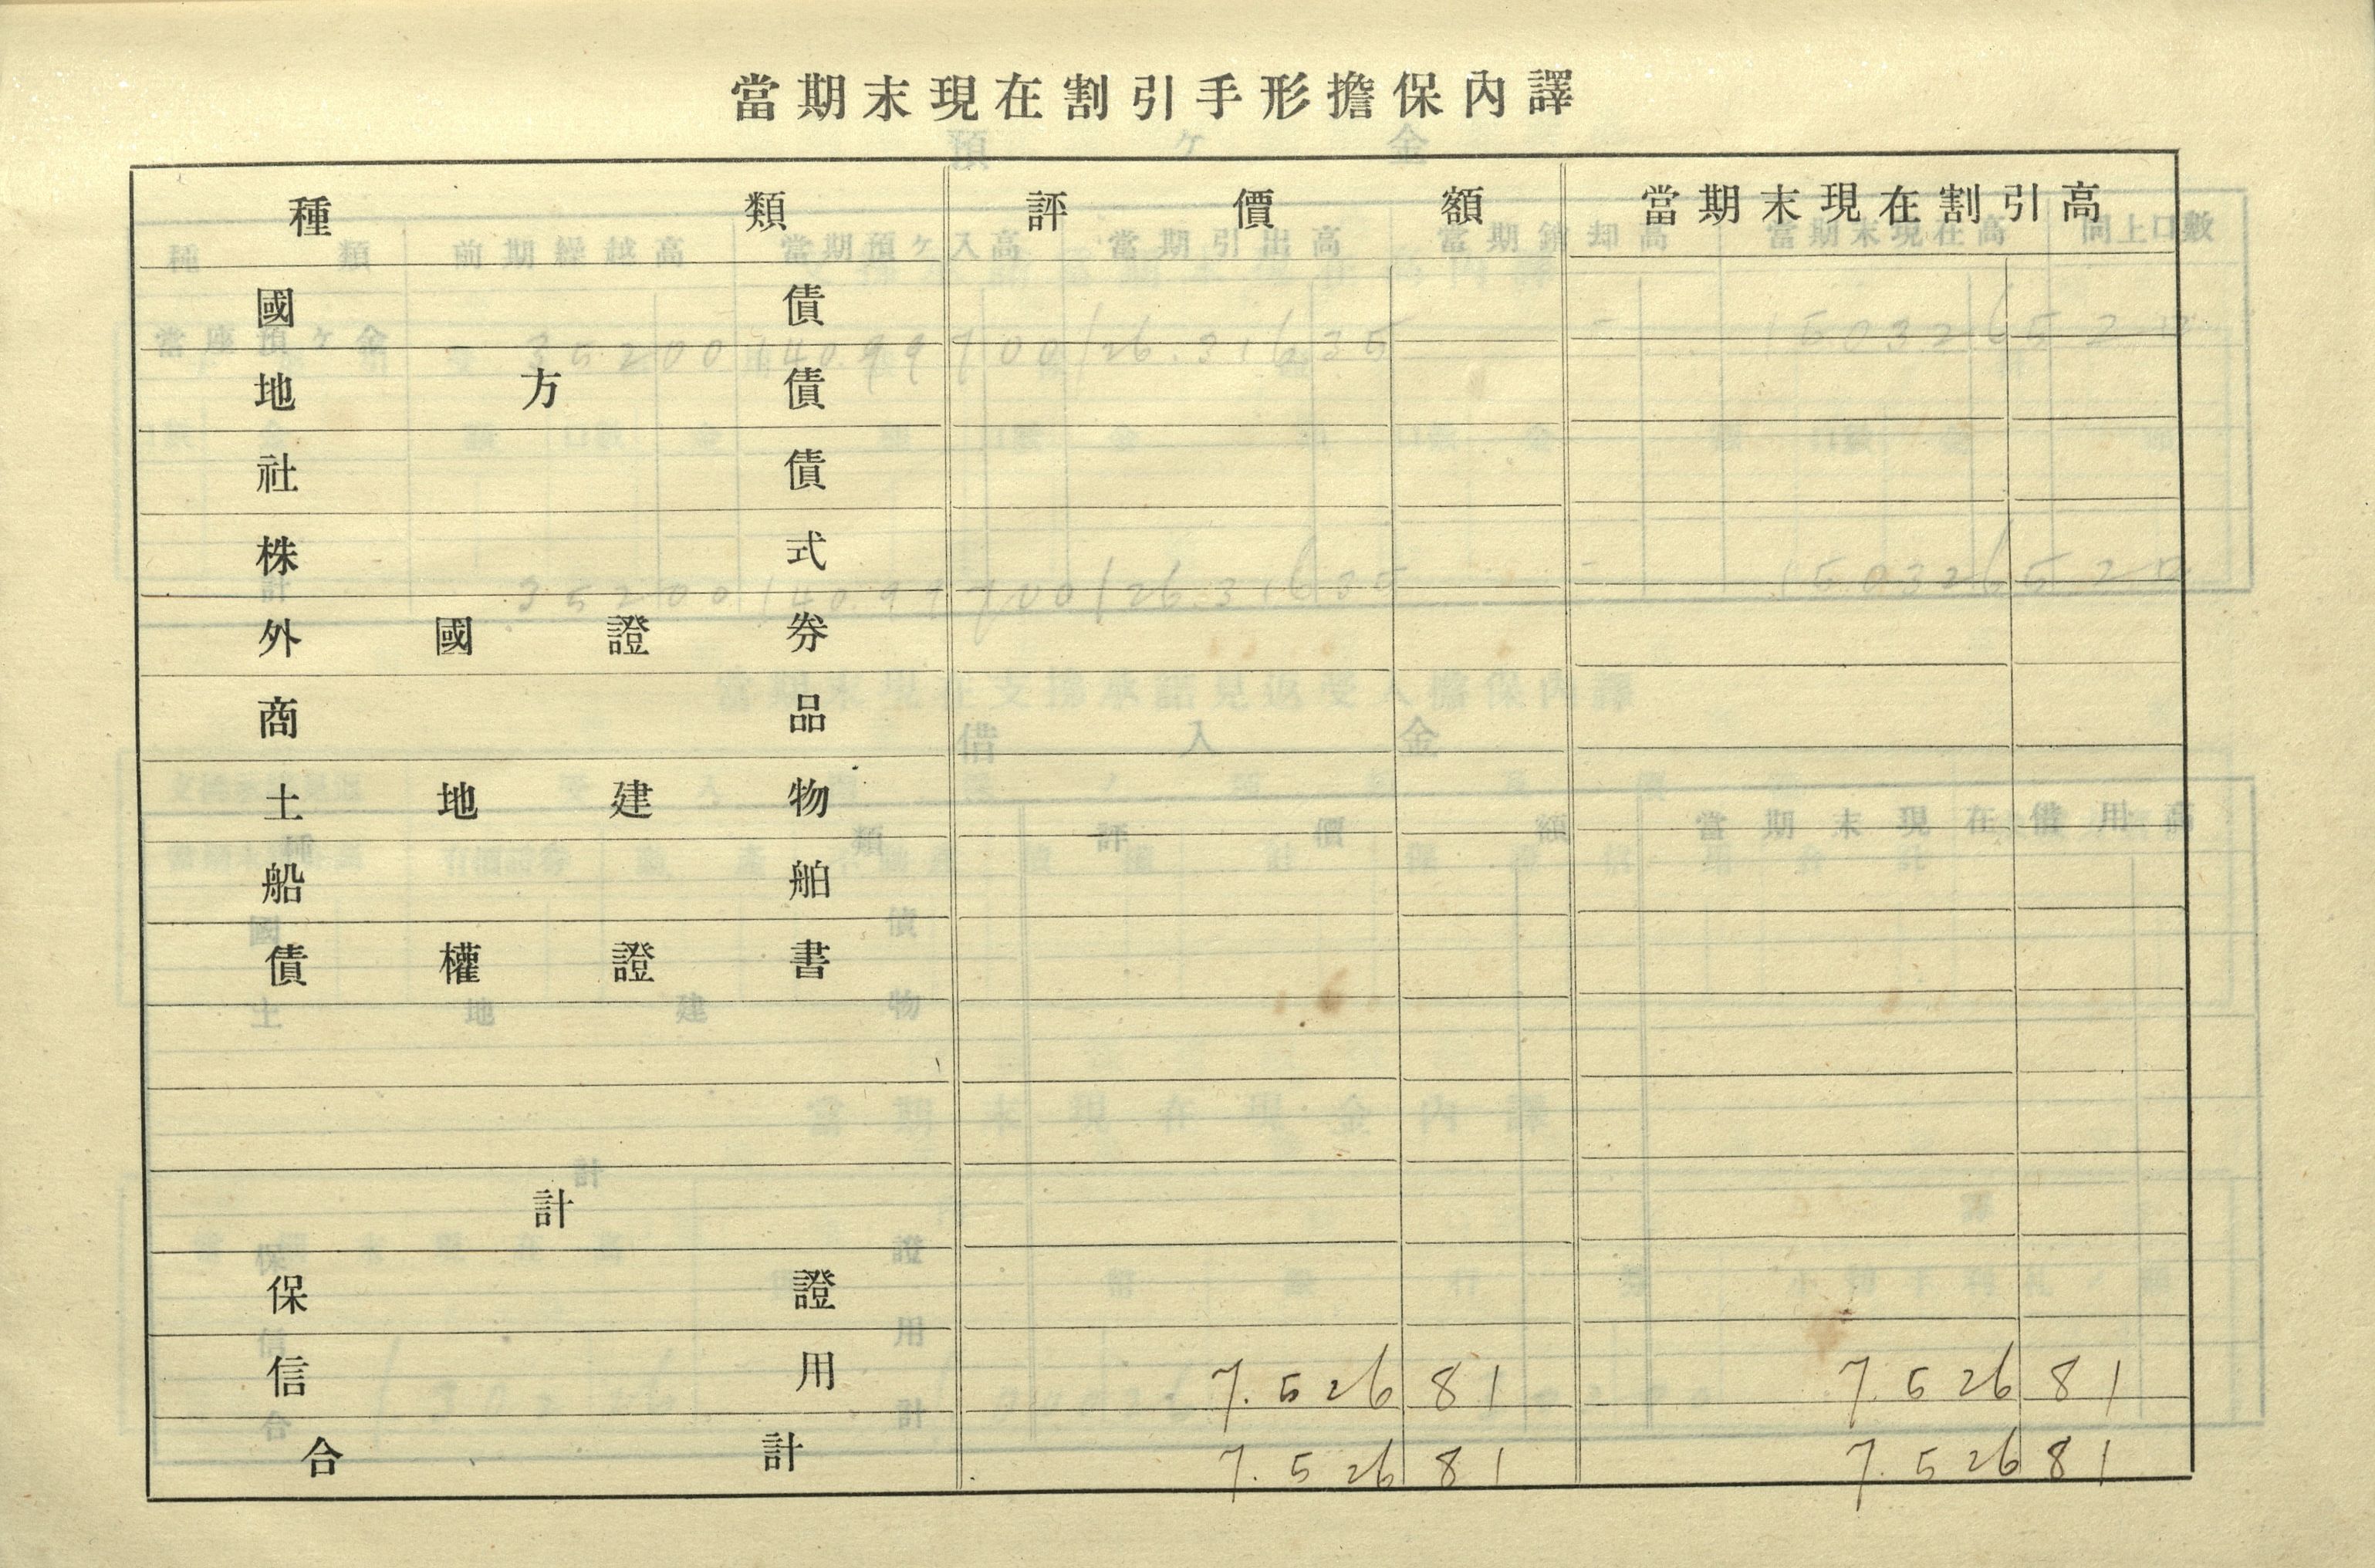 當期末現在割引手形擔保內譯
種類 評價額 當期末現在割引高
國債
地方債
社債
株式
外國證券
商品
土地建物
船舶
債權證書
計
保證
信用 7.526 81 7.526 81
合計 7.526 81 7.526 81